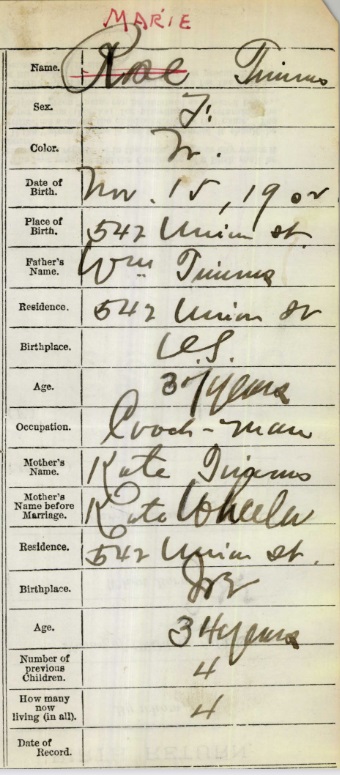 MARIE
Name. Rose Timms
Sex. F.
Color. W.
Date of
Birth. Nov. 15, 1902
Place of
Birth. 542 Union st.
Father's
Name. Wm Timms
Residence. 542 Union St
Birthplace. U.S.
Age. 37 years
Occupation. Coach-man
Mother's
Name. Kate Timms
Mother's
Name before
Marriage. Kate Wheeler
Residence. 542 Union st.
Birthplace. Ire
Age. 34 years
Number of
previous
Children. 4
How many
now
living (in all). 4
Date of
Record.